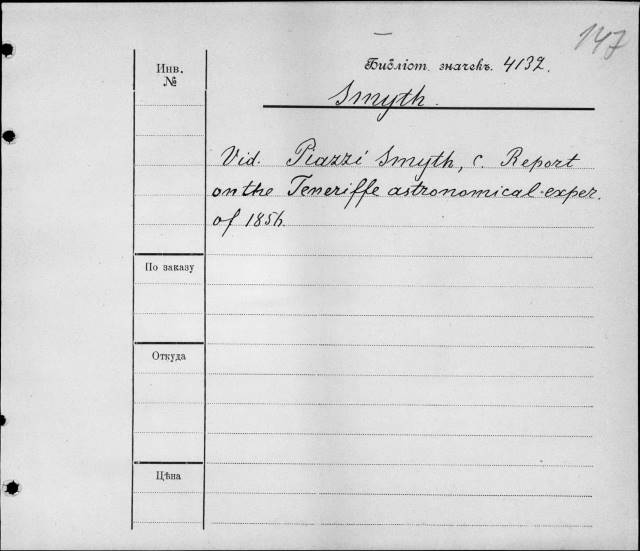 147
Библіот. значекъ. 4132.
Инв.
№
Smyth.
Vid. Piazzi Smyth, C. Report
on the Teneriffe astronomical exper.
of 1856.
По заказу
Откуда
Цѣна